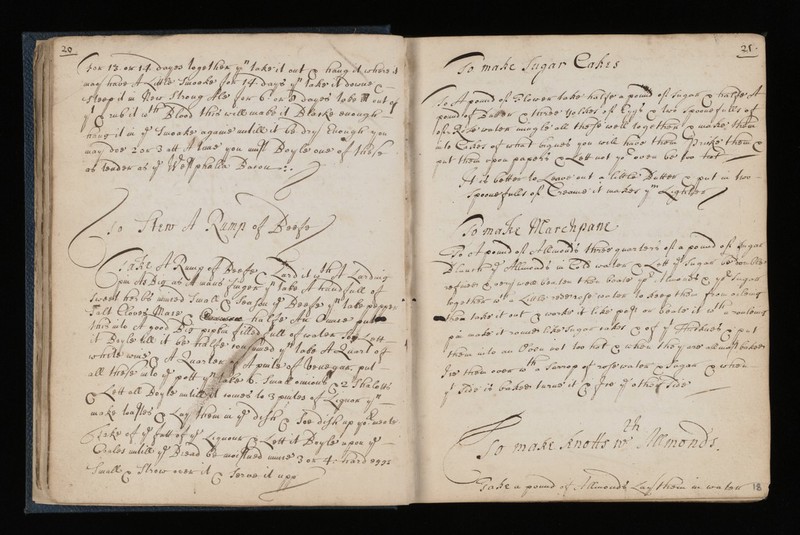 20
For 13 or 14 dayes together yn take it out & hang it where it
may have A Little Smoake for 14 days yn take it downe &
steep it in New Strong Ale for 6 or 8 dayes take it out of
yt & rub it wth Blood this will make it Blacke enough
hang it in ye Smoake againe untill it be dry Enough you
may doe 2 or 3 att A time you must Boyle one of these
as tender as ye Westphalia Bacon
To Stew A Rump of Beefe
Take A Rump of Beefe & Lard it wth A Larding
pin As Big as A mans finger yn take A handfull of
Sweet hearbs mixed Small & Season ye Beefe yn take pepper
Salt Cloves Mace & halfe An Ounce put
this into A good Big pipkin filled full of water Soe Lett
it Boyle till it be halfe consumed yn take A Quart of
white wine & A Quarter of A pinte of Venegar put
all these into ye pott yn take 6 Small onions & 2 Shalotts
& Lett all Boyle untill it comes to 3 pintes of Liquor yn
make toastes & Lay them in ye dish & Soe dish up yor meate
Take of ye fatt of ye Liquour & Lett it Boyle upon ye
Coales untill ye Bread be moistned mince 3 or 4 hard eggs
Small & Strow over it & Serve it upp
21
To make Sugar Cakes
To A pound of Flower take halfe a pound of Sugar & halfe A
pound of Butter & three yolkes of Eggs & two Spoonefulls of
Rose water mingle all these well together & make them
into Cakes of what bignes you will have them & prike them &
put them upon papers & Let not yr oven be too hot
It is better to Leave out a little Butter & put in two
Spoonefulls of Creame it makes ym Lighter
To make Marchpane
To A pound of Allmonds three quarters of a pound of Sugar
Blanch ye Allmonds in Cold water & Lett ye Sugar be double
refined & very well beaten then beate yr Almonds & yr Sugar
together wth a Little rose water to keep them from oyleing
then take it out & worke it like past or beate it wth a rowleing
pin make it round like Sugar cakes & of yt thicknes & put
them into an Oven not too hot & when they are allmost baked
Ice them over wth a Sirrop of rose water & Sugar & when
yt Side is baked turne it & Ice ye other Side
To make Knotts wth Allmonds.
Take a pound of Allmonds Lay them in water
18